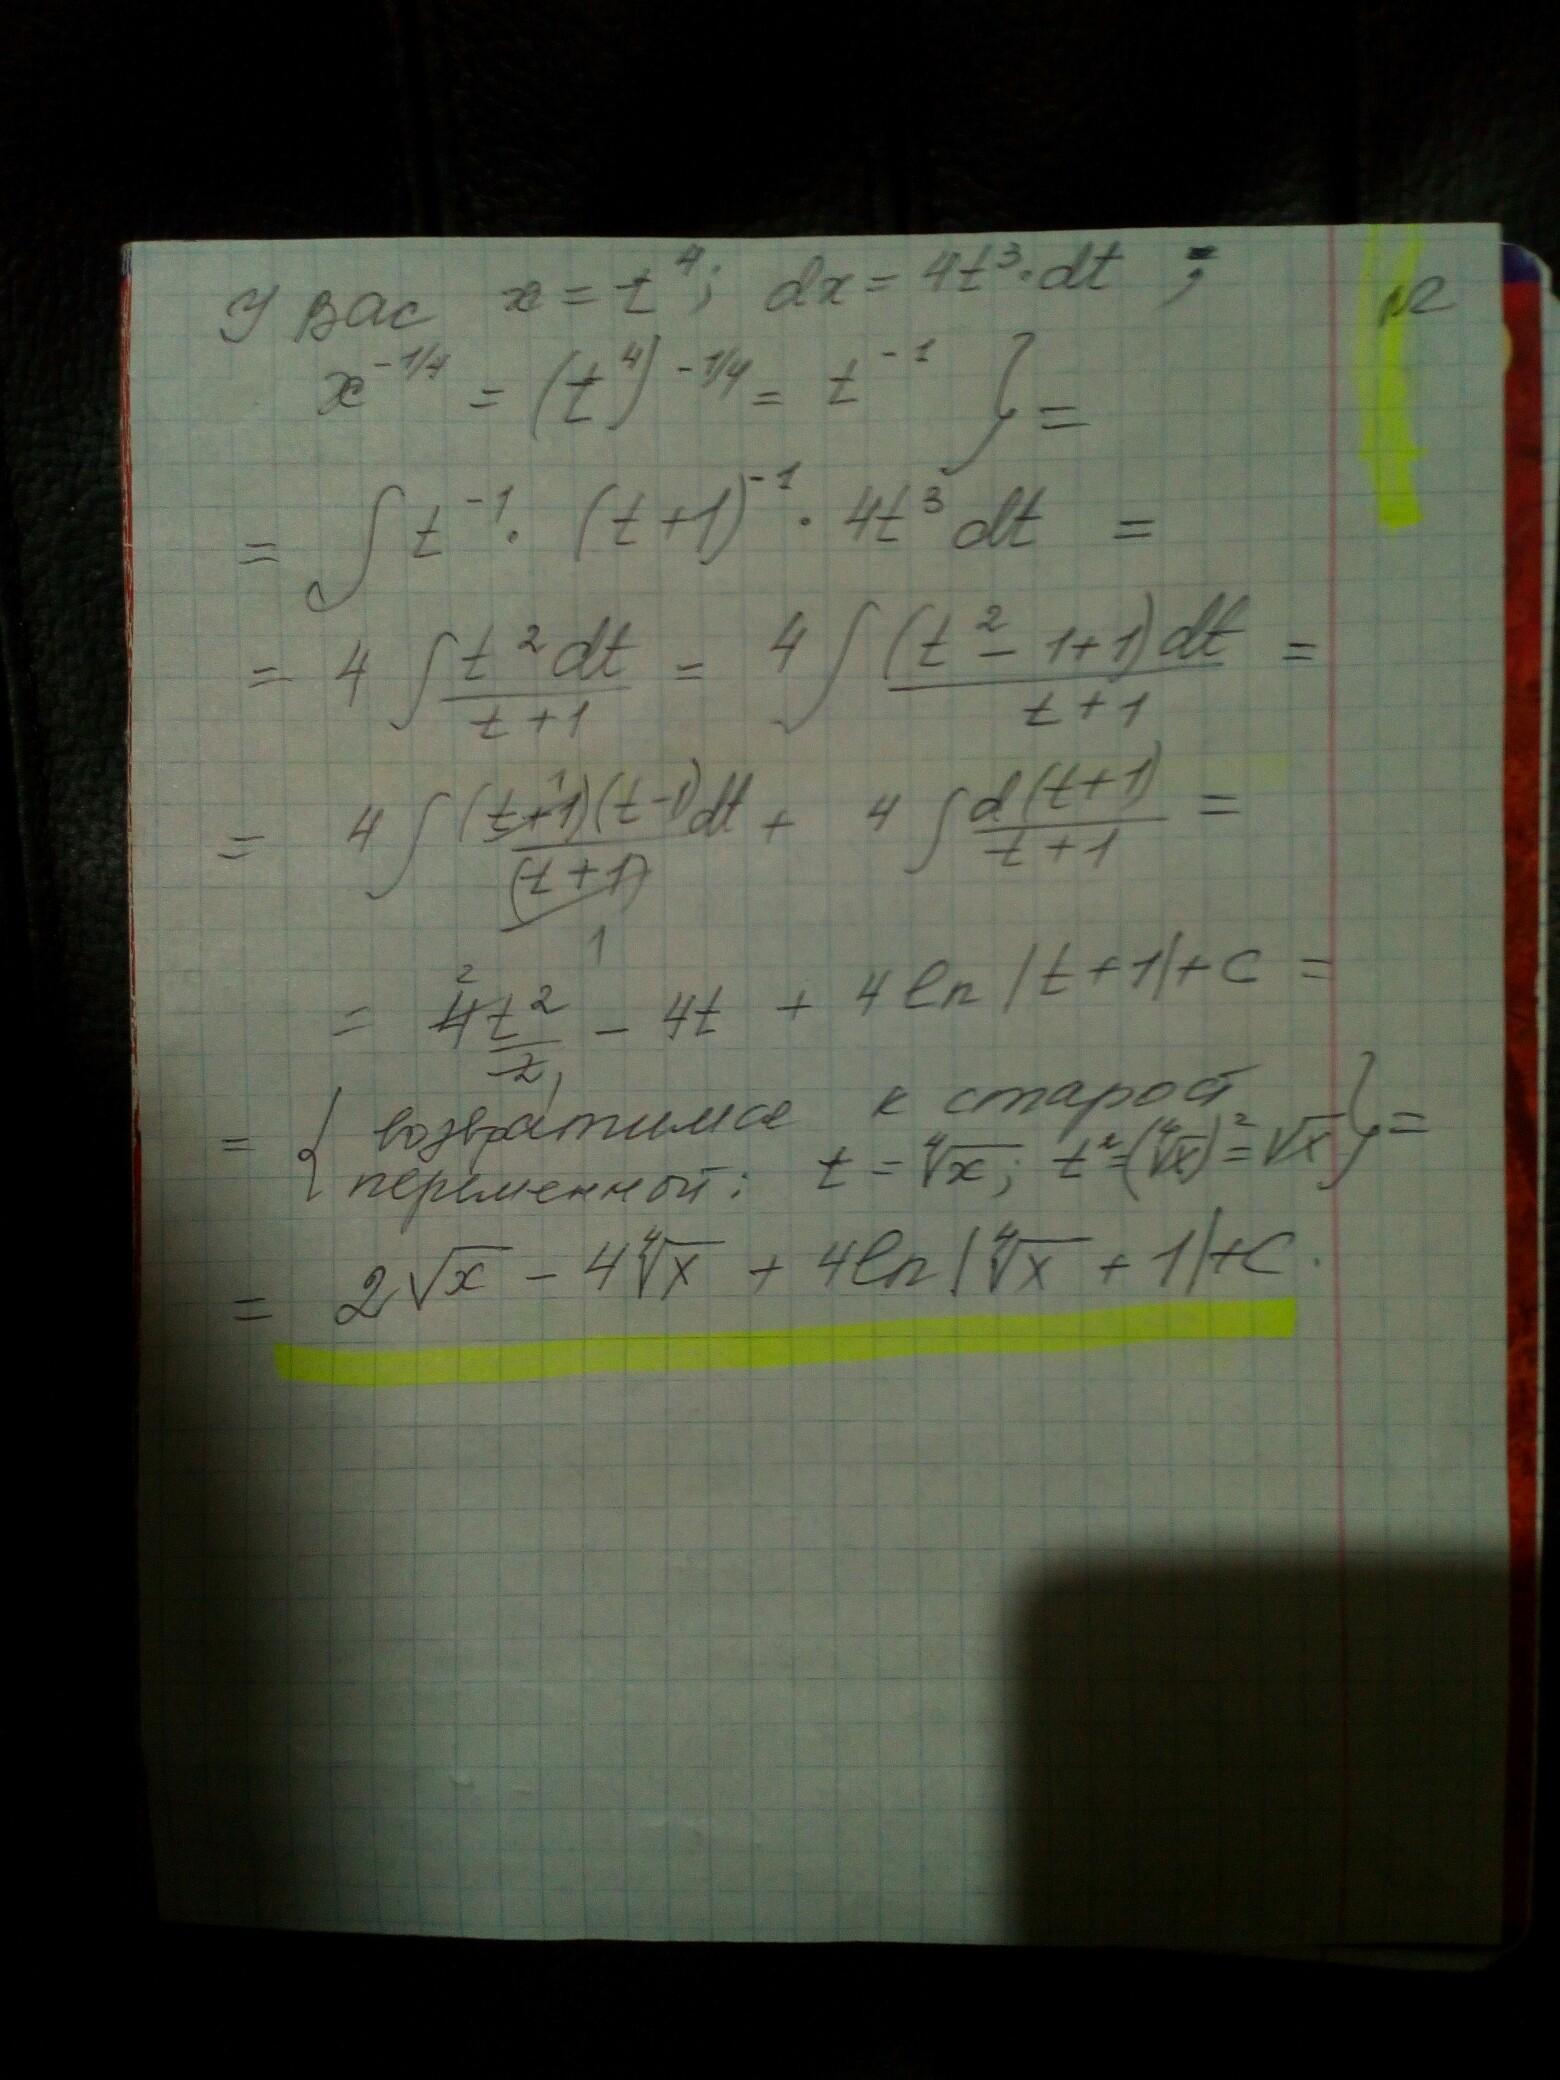 У вас x = t⁴; dx = 4t³·dt ;
x^(-1/4) = (t⁴)^(-1/4) = t^(-1) } =
= ∫ t^(-1) · (t+1)^(-1) · 4t³ dt =
= 4 ∫ t² dt / (t+1) = 4 ∫ (t² - 1+1) dt / (t+1) =
= 4 ∫ (t+1)(t-1) dt / (t+1) + 4 ∫ d(t+1) / (t+1) =
= 4t²/2 - 4t + 4 ln |t+1| + C =
= { возвратимся к старой
переменной: t = ⁴√x; t² = (⁴√x)² = √x } =
= 2√x - 4⁴√x + 4 ln |⁴√x + 1| + C.